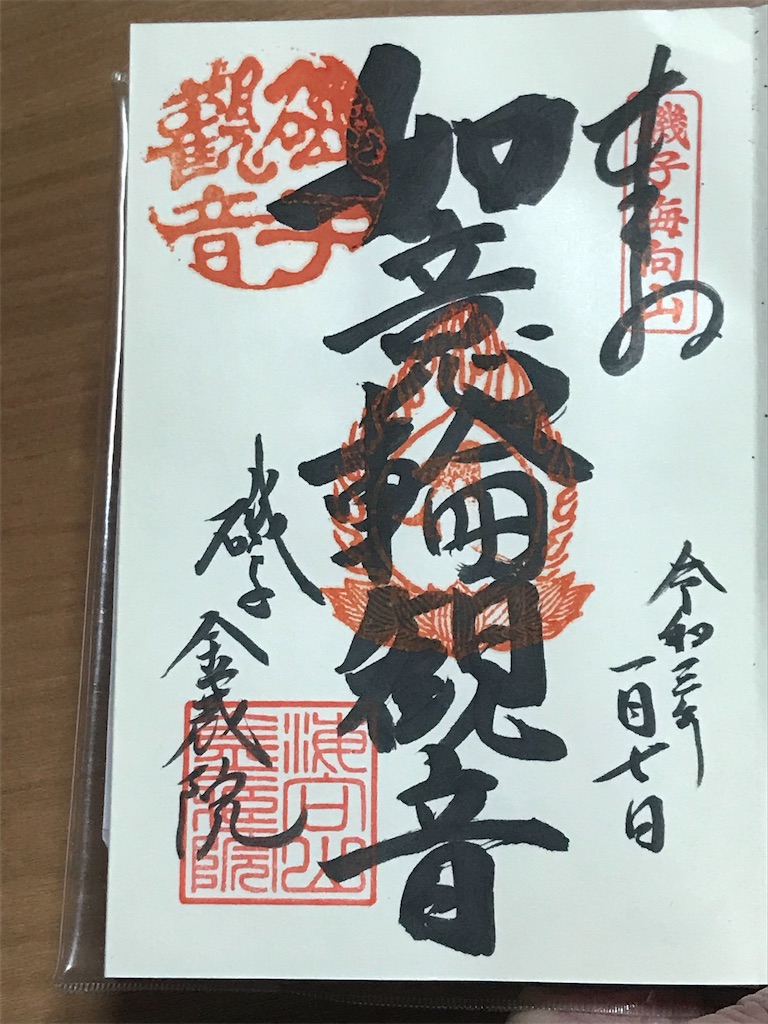 奉拝
磯子海向山
令和三年
一月七日
如意輪観音
磯子
觀音
磯子
金蔵院
海向山
金蔵院